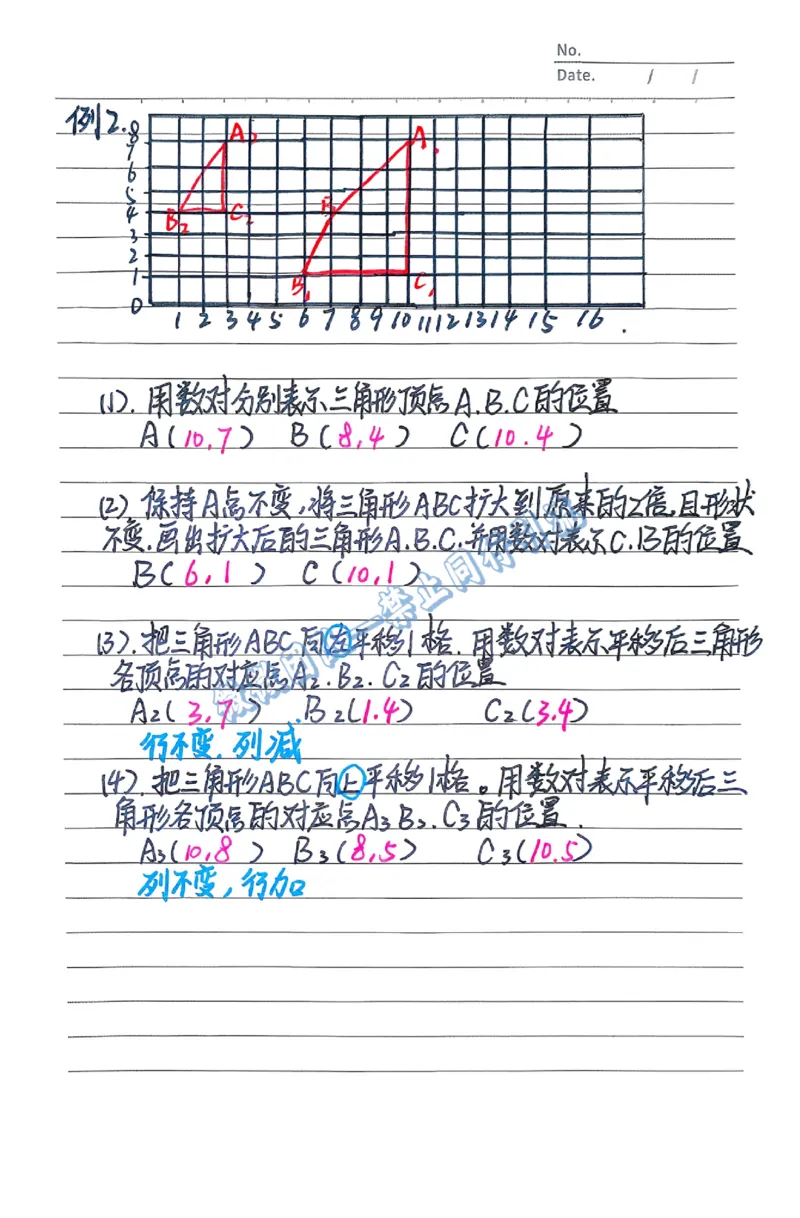 No.
Date. / /
例2.
8
7
6
5
4
3
2
1
0
A2
B2
C2
A1
B
B1
C1
1 2 3 4 5 6 7 8 9 10 11 12 13 14 15 16 .
(1). 用数对分别表示三角形顶点A.B.C的位置
A(10,7) B(8,4) C(10.4)
(2) 保持A点不变,将三角形ABC扩大到原来的2倍,且形状
不变.画出扩大后的三角形A.B.C.并用数对表示C.B的位置
B(6,1) C(10,1)
(3).把三角形ABC向左平移1格.用数对表示平移后三角形
各顶点的对应点A2.B2.C2的位置
A2(3,7) B2(1.4) C2(3.4)
行不变.列减
(4).把三角形ABC向上平移1格。用数对表示平移后三
角形各顶点的对应点A3B3.C3的位置.
A3(10,8) B3(8,5) C3(10.5)
列不变,行加